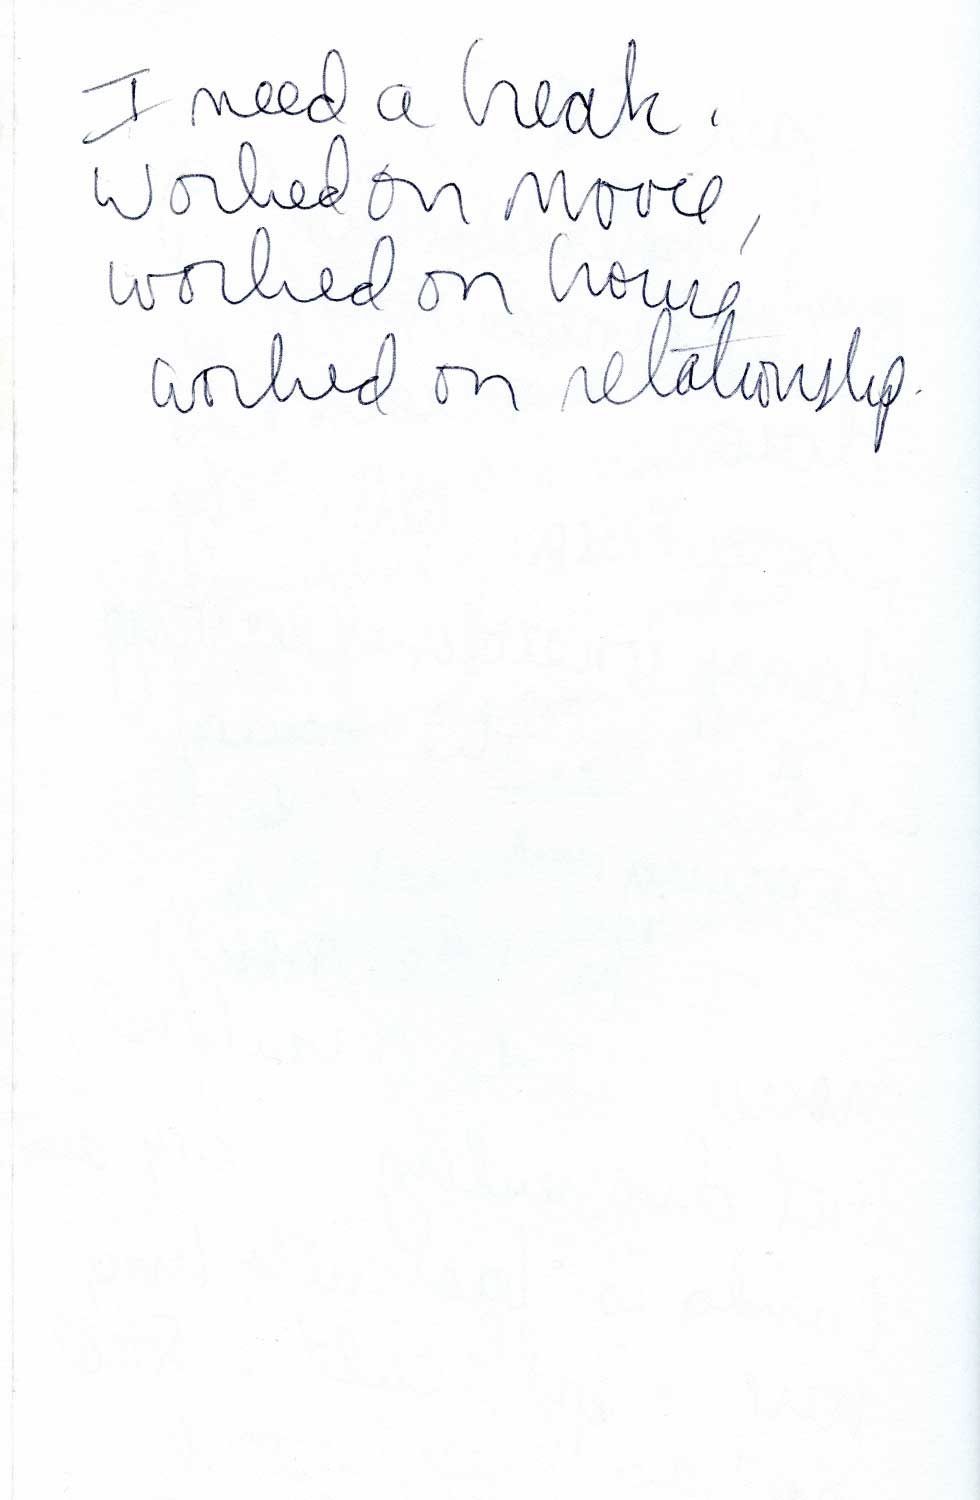 I need a break.
Worked on movie,
worked on house,
worked on relationship.